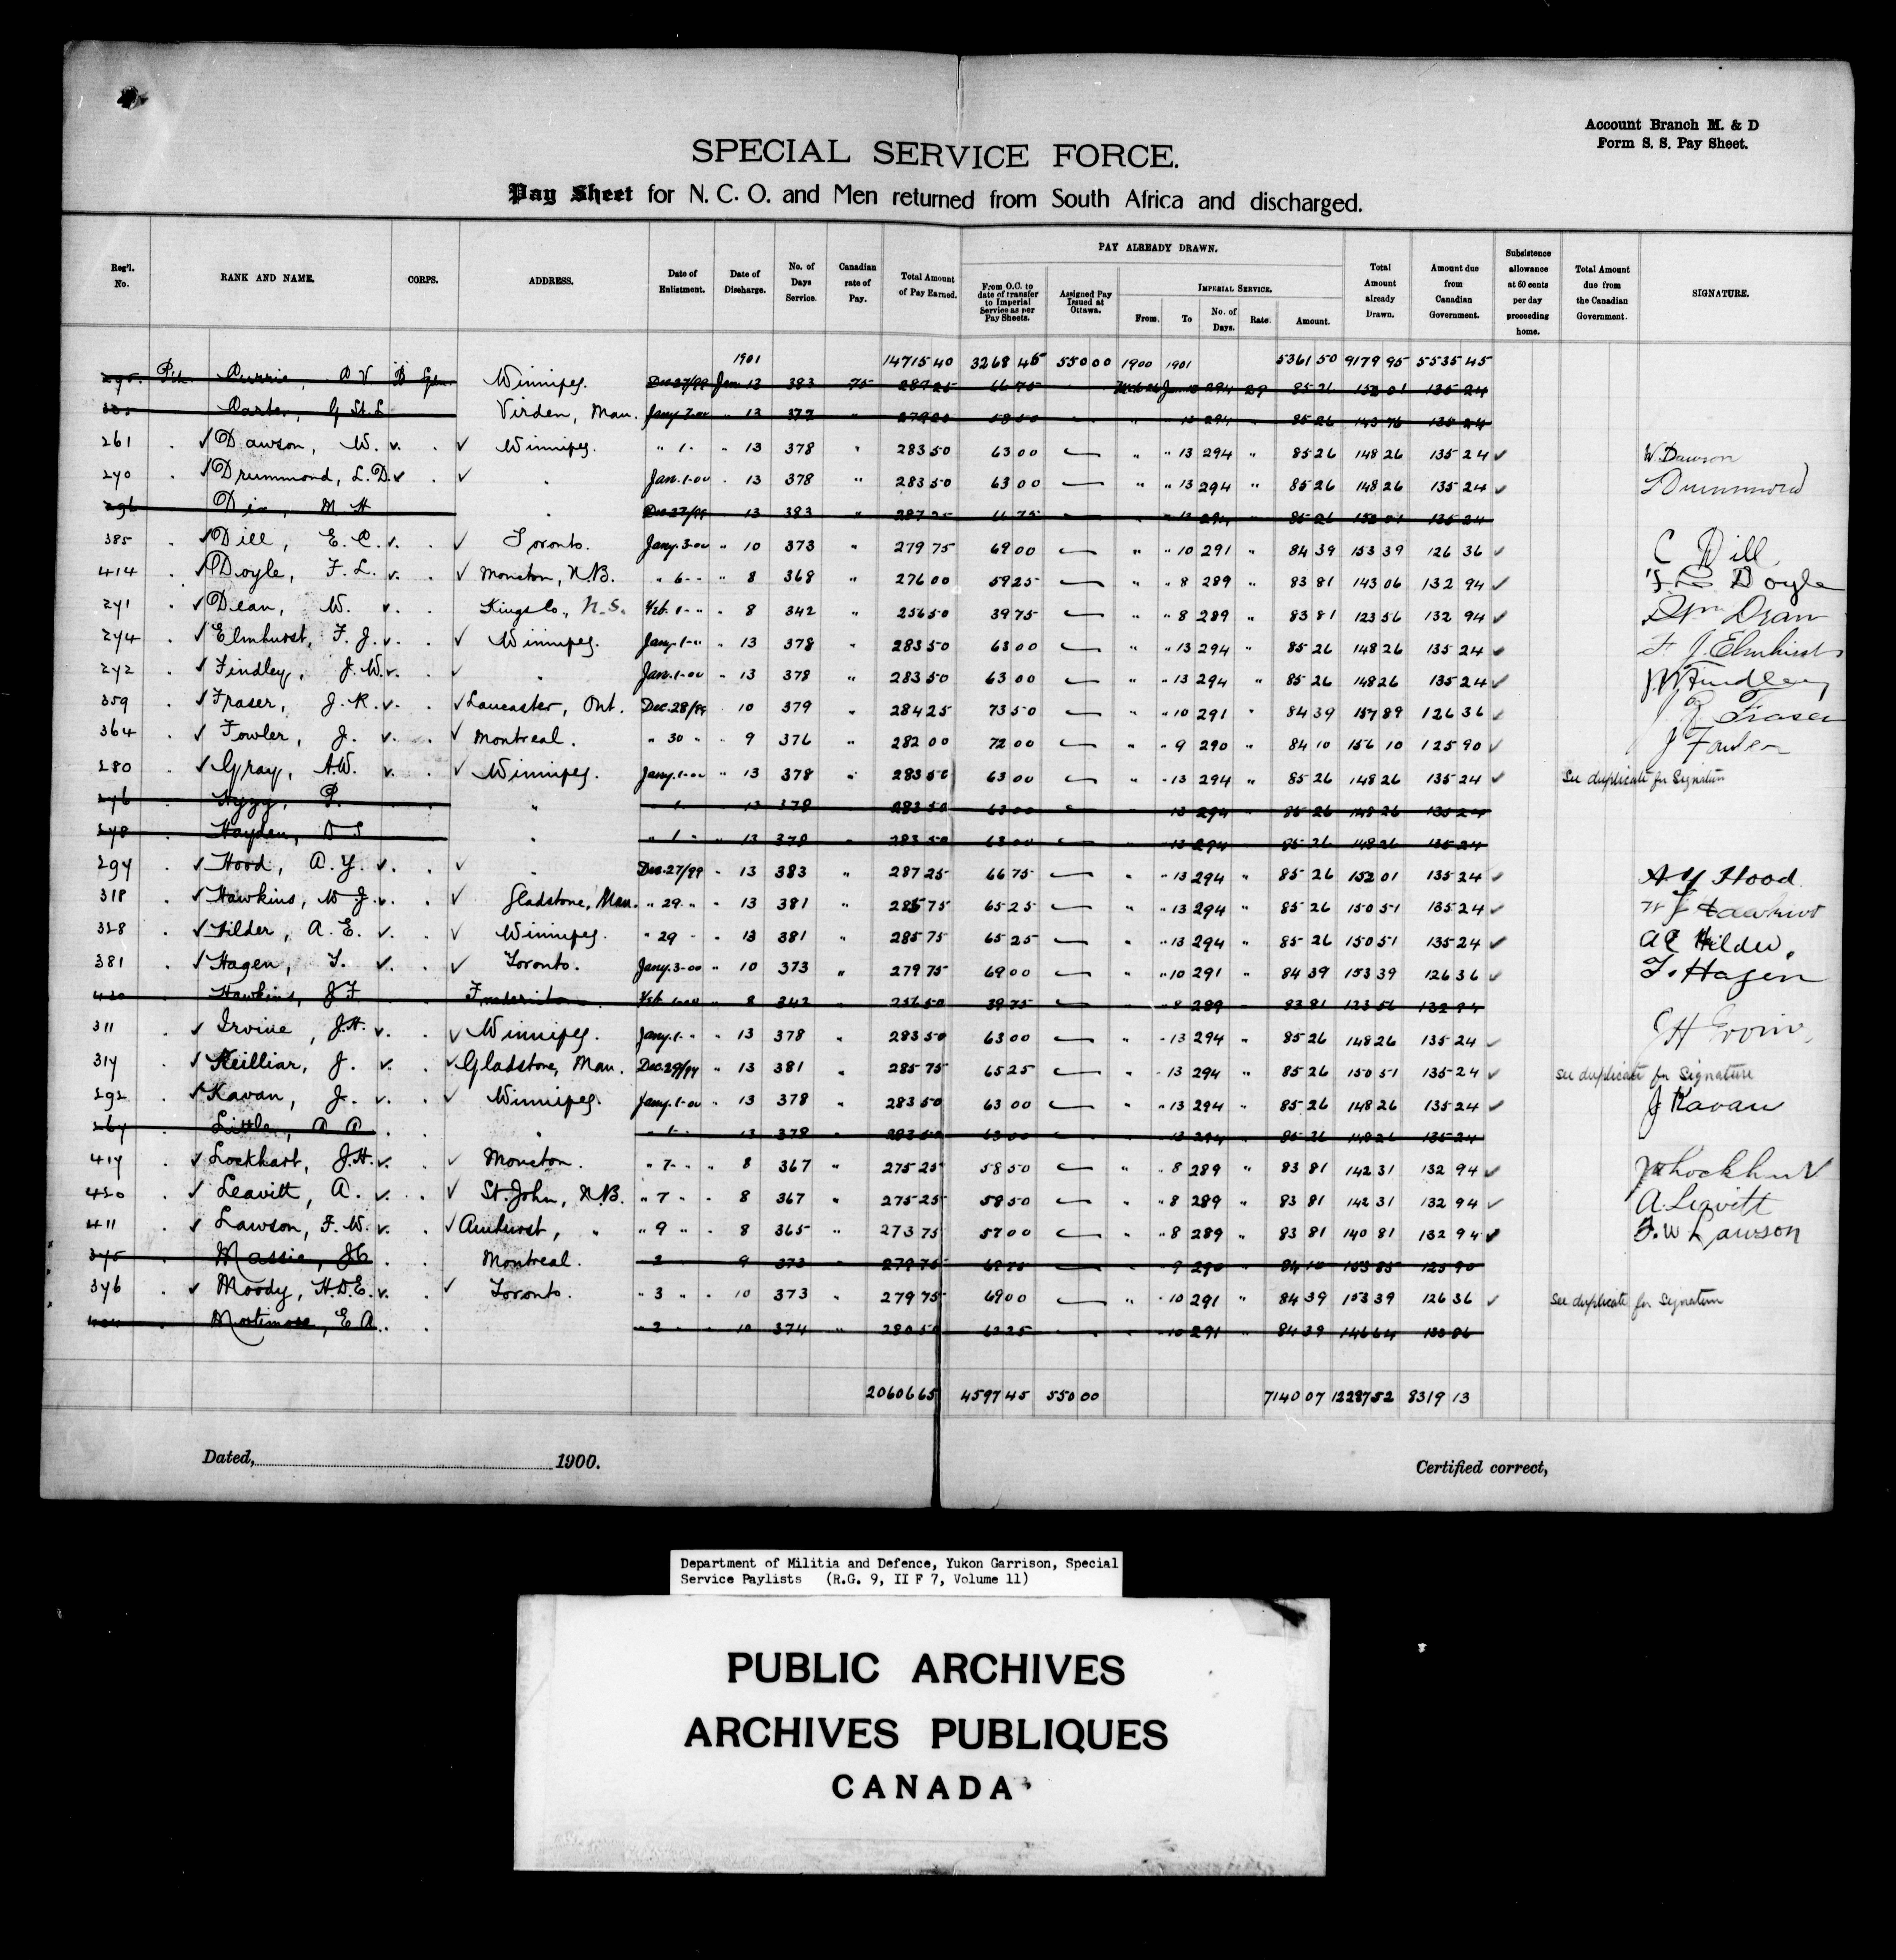 Account Branch M. & D
Form S. S. Pay Sheet.
SPECIAL SERVICE FORCE.
Pay Sheet for N. C. O. and Men returned from South Africa and discharged.
Reg'l. No. RANK AND NAME. CORPS. ADDRESS. Date of Enlistment. Date of Discharge. No. of Days Service. Canadian rate of Pay. Total Amount of Pay Earned. PAY ALREADY DRAWN. From O.C. to date of transfer to Imperial Service as per Pay Sheets. Assigned Pay Issued at Ottawa. IMPERIAL SERVICE. From. To No. of Days. Rate. Amount. Total Amount already Drawn. Amount due from Canadian Government. Subsistence allowance at 60 cents per day proceeding home. Total Amount due from the Canadian Government. SIGNATURE.
1901 14715 40 3268 45 550 00 1900 1901 5361 50 9179 95 5535 45
Currie, D V Winnipeg. Dec 27/99 Jan 13 383 75 287 25 66 75 294 29 85 26 152 01 135 24
Carter, G St. L Virden, Man. Jany. 7-00 " 13 372 279 00 58 50 " 13 294 85 26 143 76 135 24
261 Dawson, W. Winnipeg. " 1 " 13 378 " 283 50 63 00 " " 13 294 " 85 26 148 26 135 24 W. Dawson
270 Drummond, L. D. " Jan. 1-00 " 13 378 " 283 50 63 00 " " 13 294 " 85 26 148 26 135 24 L Drummond
296 M H " Dec 27/99 13 383 " 287 25 66 75 " 13 294 85 26 152 01 135 24
385 Dill, E. C. Toronto. Jany. 3-00 " 10 373 " 279 75 69 00 " " 10 291 " 84 39 153 39 126 36 C Dill
414 Doyle, F. L. Moncton, N.B. " 6 - " 8 368 " 276 00 59 25 " " 8 289 " 83 81 143 06 132 94 F L Doyle
271 Dean, W. Kings Co., N.S. Feb. 1 - " " 8 342 " 256 50 39 75 " " 8 289 " 83 81 123 56 132 94 Wm Dean
274 Elmhurst, F. J. Winnipeg. Jany. 1 - " " 13 378 " 283 50 63 00 " " 13 294 " 85 26 148 26 135 24 F. J. Elmhurst
272 Findley, J. W. " Jan. 1-00 " 13 378 " 283 50 63 00 " " 13 294 " 85 26 148 26 135 24 J W Findley
359 Fraser, J. R. Lancaster, Ont. Dec. 28/99 " 10 379 " 284 25 73 50 " " 10 291 " 84 39 157 89 126 36 J R Fraser
364 Fowler, J. Montreal. " 30 " " 9 376 " 282 00 72 00 " " 9 290 " 84 10 156 10 125 90 J Fowler
280 Gray, A.W. Winnipeg. Jany. 1-00 " 13 378 " 283 50 63 00 " " 13 294 " 85 26 148 26 135 24 See duplicate for Signature
276 P. " " 1 13 378 283 50 63 00 13 294 85 26 148 26 135 24
278 Hayden, D S " " 1 " 13 378 283 50 63 00 13 294 85 26 148 26 135 24
297 Hood, A. Y. " Dec. 27/99 " 13 383 " 287 25 66 75 " " 13 294 " 85 26 152 01 135 24 A Y Hood
318 Hawkins, W J. Gladstone, Man. " 29 " " 13 381 " 285 75 65 25 " " 13 294 " 85 26 150 51 135 24 W J Hawkins
328 Hilder, A. E. Winnipeg. " 29 - " 13 381 " 285 75 65 25 " " 13 294 " 85 26 150 51 135 24 A E Hilder.
381 Hagen, T. Toronto. Jany. 3-00 " 10 373 " 279 75 69 00 " " 10 291 " 84 39 153 39 126 36 T. Hagen
Hawkins, J F. Fredericton Feb 1-00 8 342 256 50 39 75 " 8 289 83 81 123 56 132 94
311 Irvine, J.H. Winnipeg. Jany. 1 - " " 13 378 " 283 50 63 00 " " 13 294 " 85 26 148 26 135 24 J H Irvine
317 Keilliar, J. Gladstone, Man. Dec. 29/99 " 13 381 " 285 75 65 25 " " 13 294 " 85 26 150 51 135 24 See duplicate for Signature
292 Kavan, J. Winnipeg. Jany. 1-00 " 13 378 " 283 50 63 00 " " 13 294 " 85 26 148 26 135 24 J Kavan
267 Little, A. A. " " 1 - 13 378 283 50 63 00 13 294 85 26 148 26 135 24
417 Lockhart, J.H. Moncton. " 7 - " " 8 367 " 275 25 58 50 " " 8 289 " 83 81 142 31 132 94 J H Lockhart
420 Leavitt, A. St. John, N.B. " 7 " " 8 367 " 275 25 58 50 " " 8 289 " 83 81 142 31 132 94 A. Leavitt
411 Lawson, F. W. Amhurst, " " 9 " " 8 365 " 273 75 57 00 " " 8 289 " 83 81 140 81 132 94 F. W Lawson
375 Massie, J C Montreal. 2 9 373 279 75 9 290 84 10 153 85 125 90
376 Moody, H.D.E. Toronto. " 3 " " 10 373 " 279 75 69 00 " " 10 291 " 84 39 153 39 126 36 See duplicate for Signature
Mortimore, E A. " 2 " 10 374 " 280 50 62 25 10 291 " 84 39 146 64 133 86
20606 65 4597 45 550 00 7140 07 12287 52 8319 13
Dated, 1900.
Certified correct,
Department of Militia and Defence, Yukon Garrison, Special
Service Paylists (R.G. 9, II F 7, Volume 11)
PUBLIC ARCHIVES
ARCHIVES PUBLIQUES
CANADA